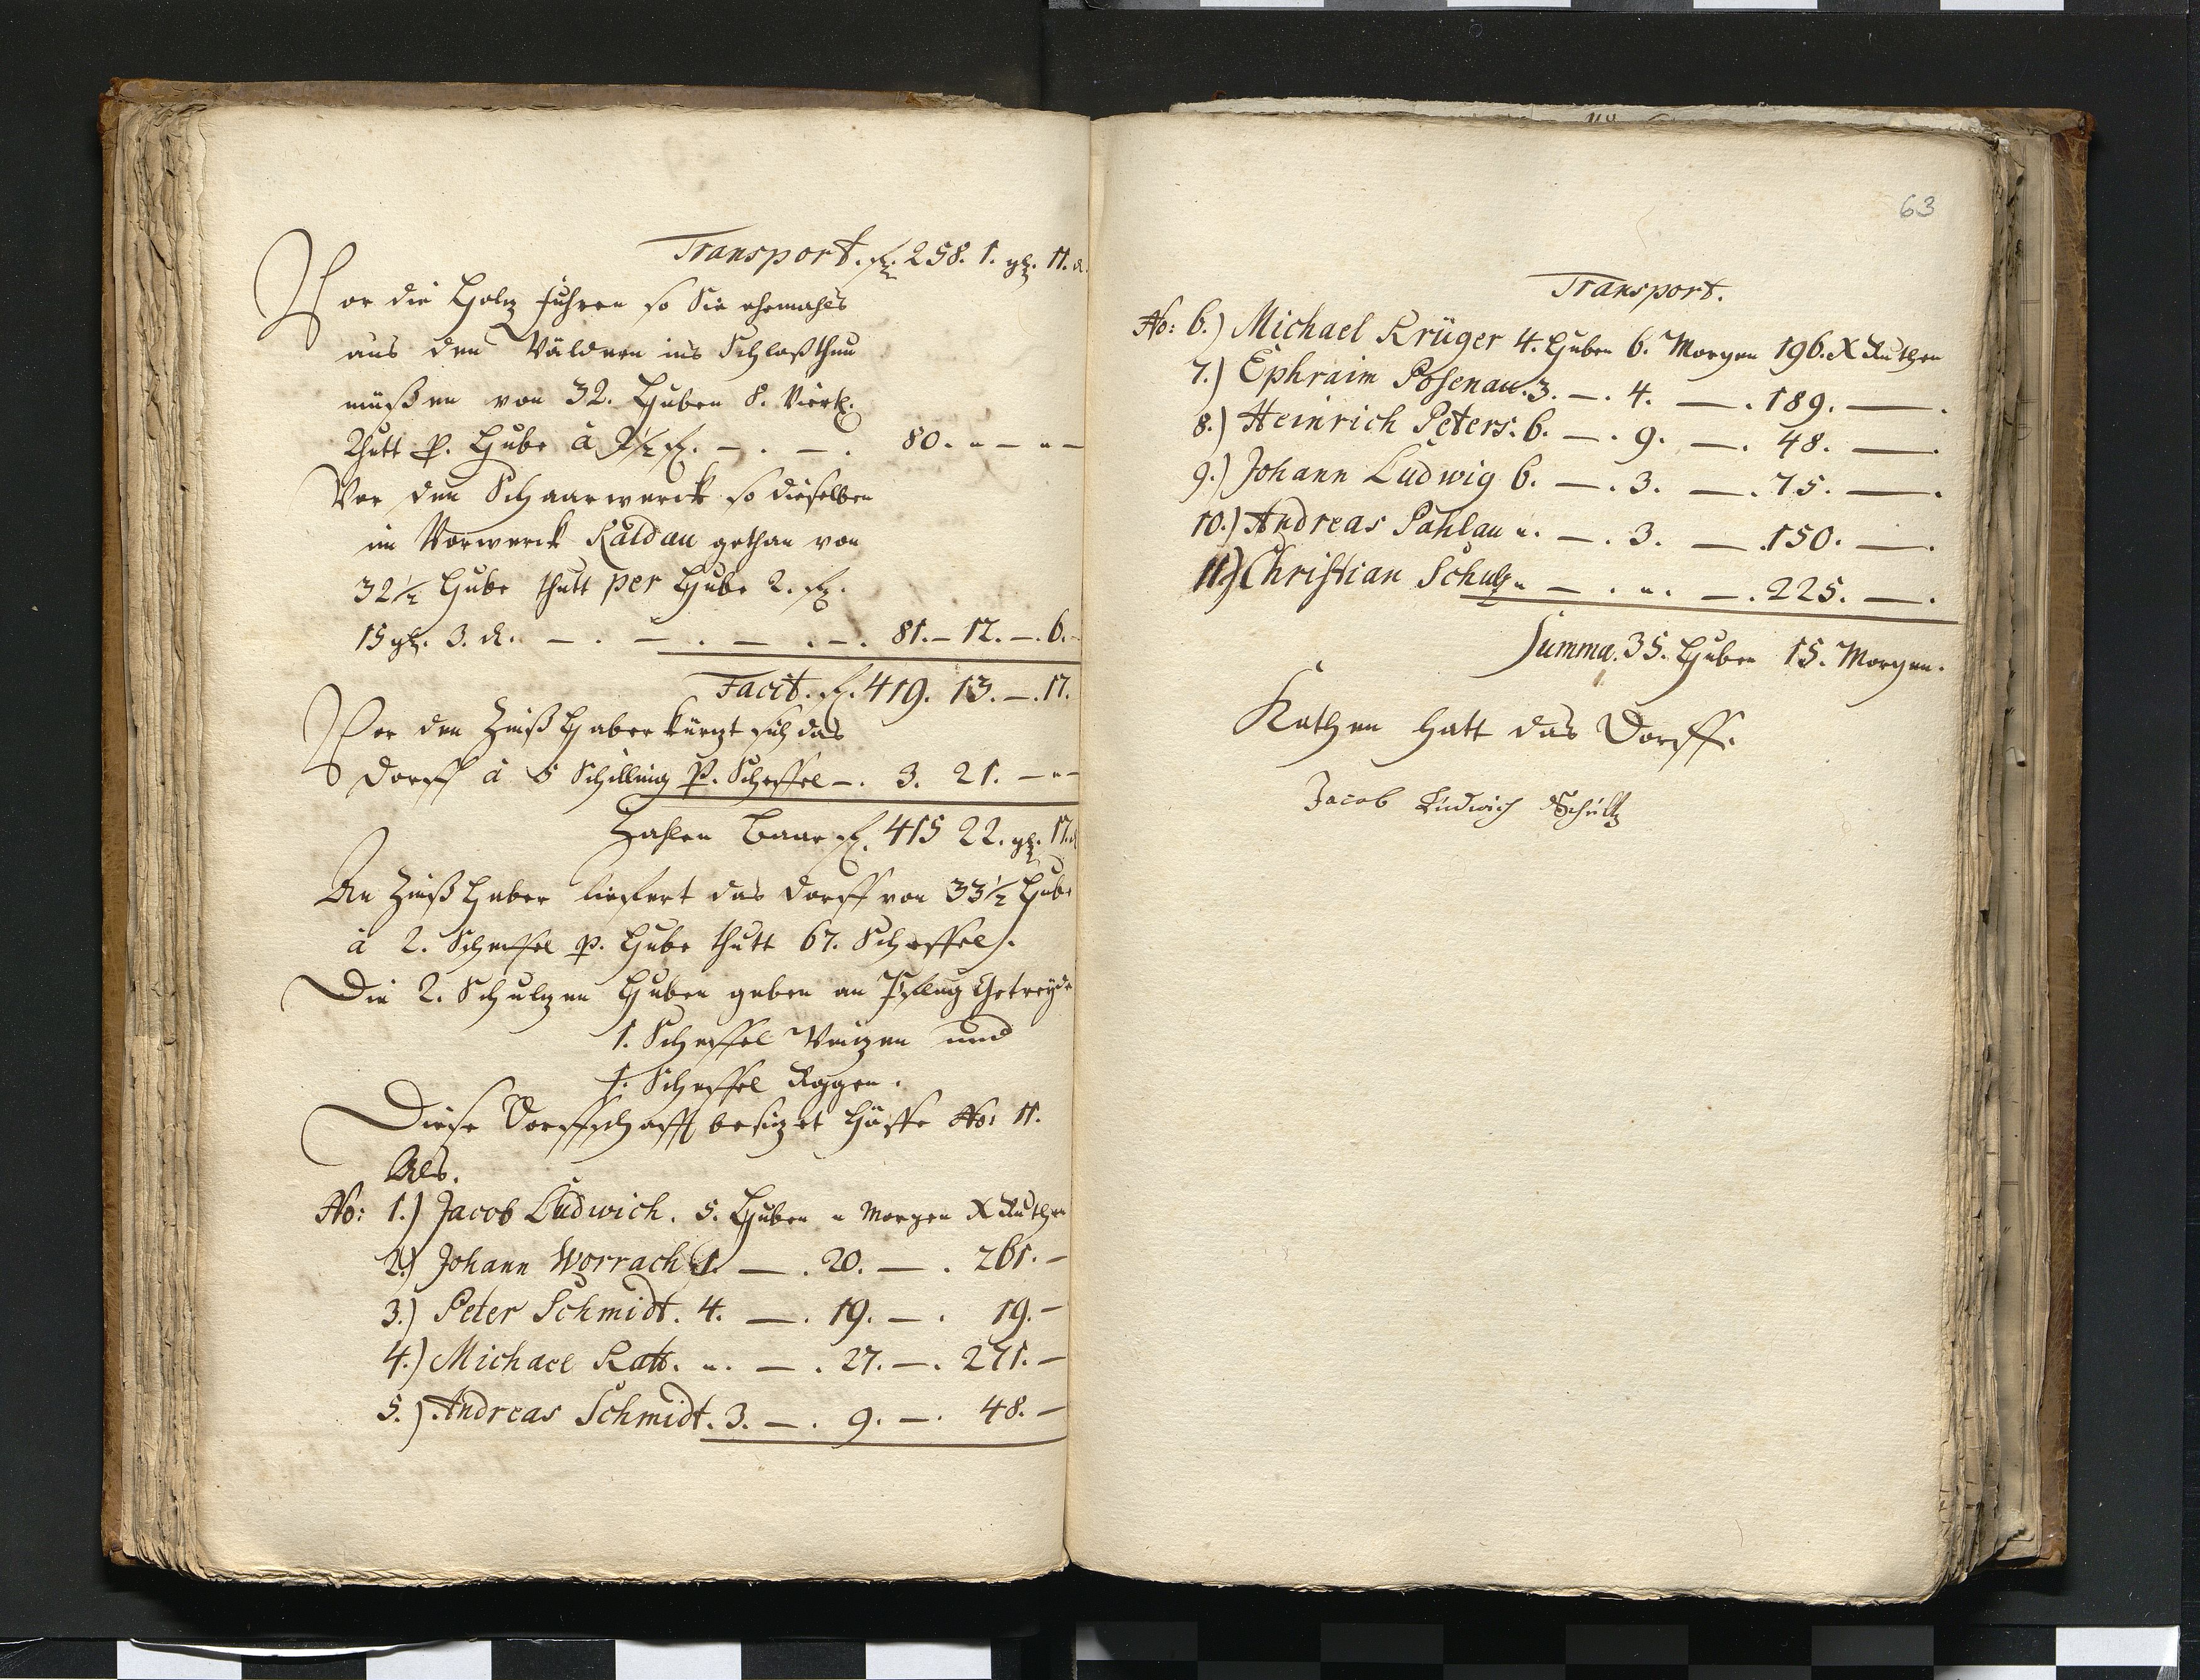 Transport. fl. 258. 1. gl. 11. d.
Vor die Holtz fuhren so Sie ehemahls
aus den Wäldern ins Schloß thun
müßen von 32. Huben 8. Viertl.
thutt p. Hube â 2½ fl. — . — . 80. " — " —
Vor den Schaarwerck so dieselben
im Vorwerck Kaldau gethan von
32½ Hube thutt per Hube 2. fl.
15 gl. 3. d. — . — . — . — . 81. — 12. — . 6. —
Facit. fl. 419. 13. — . 17.
Vor den Zinß Haber kürzt sich das
Dorff â 5 Schilling p. Scheffel — . 3. 21. — " —
Zahlen Baar fl. 415 22. gl. 17. d
An Zinß Haber liefert das Dorff von 33½ Hube
â 2. Scheffel p. Hube thutt 67. Scheffel.
Die 2. Schulzen Huben geben an Pflug Getreyde
1. Scheffel Weizen und
1. Scheffel Roggen.
Diese Dorffschafft besizet Höffe No: 11.
Als.
No: 1.) Jacob Ludwich. 5. Huben " Morgen X Ruthen
2.) Johann Worrach 1. — . 20. — . 261. —
3.) Peter Schmidt. 4. — . 19. — . 19. —
4.) Michael Ratt. " . — . 27. — . 271. —
5.) Andreas Schmidt. 3. — . 9. — . 48. —
63
Transport.
No: 6.) Michael Krüger 4. Huben 6. Morgen 196. X Ruthen
7.) Ephraim Posenau. 3. — . 4. — . 189. — .
8.) Heinrich Peters. 6. — . 9. — . 48. — .
9.) Johann Ludwig 6. — . 3. — . 75. — .
10.) Andreas Pahlau " . — . 3. — . 150. — .
11.) Christian Schulz " — . " . — . 225. — .
Summa. 35. Huben 15. Morgen.
Kathen hatt das Dorff.
Jacob Ludwich Schultz